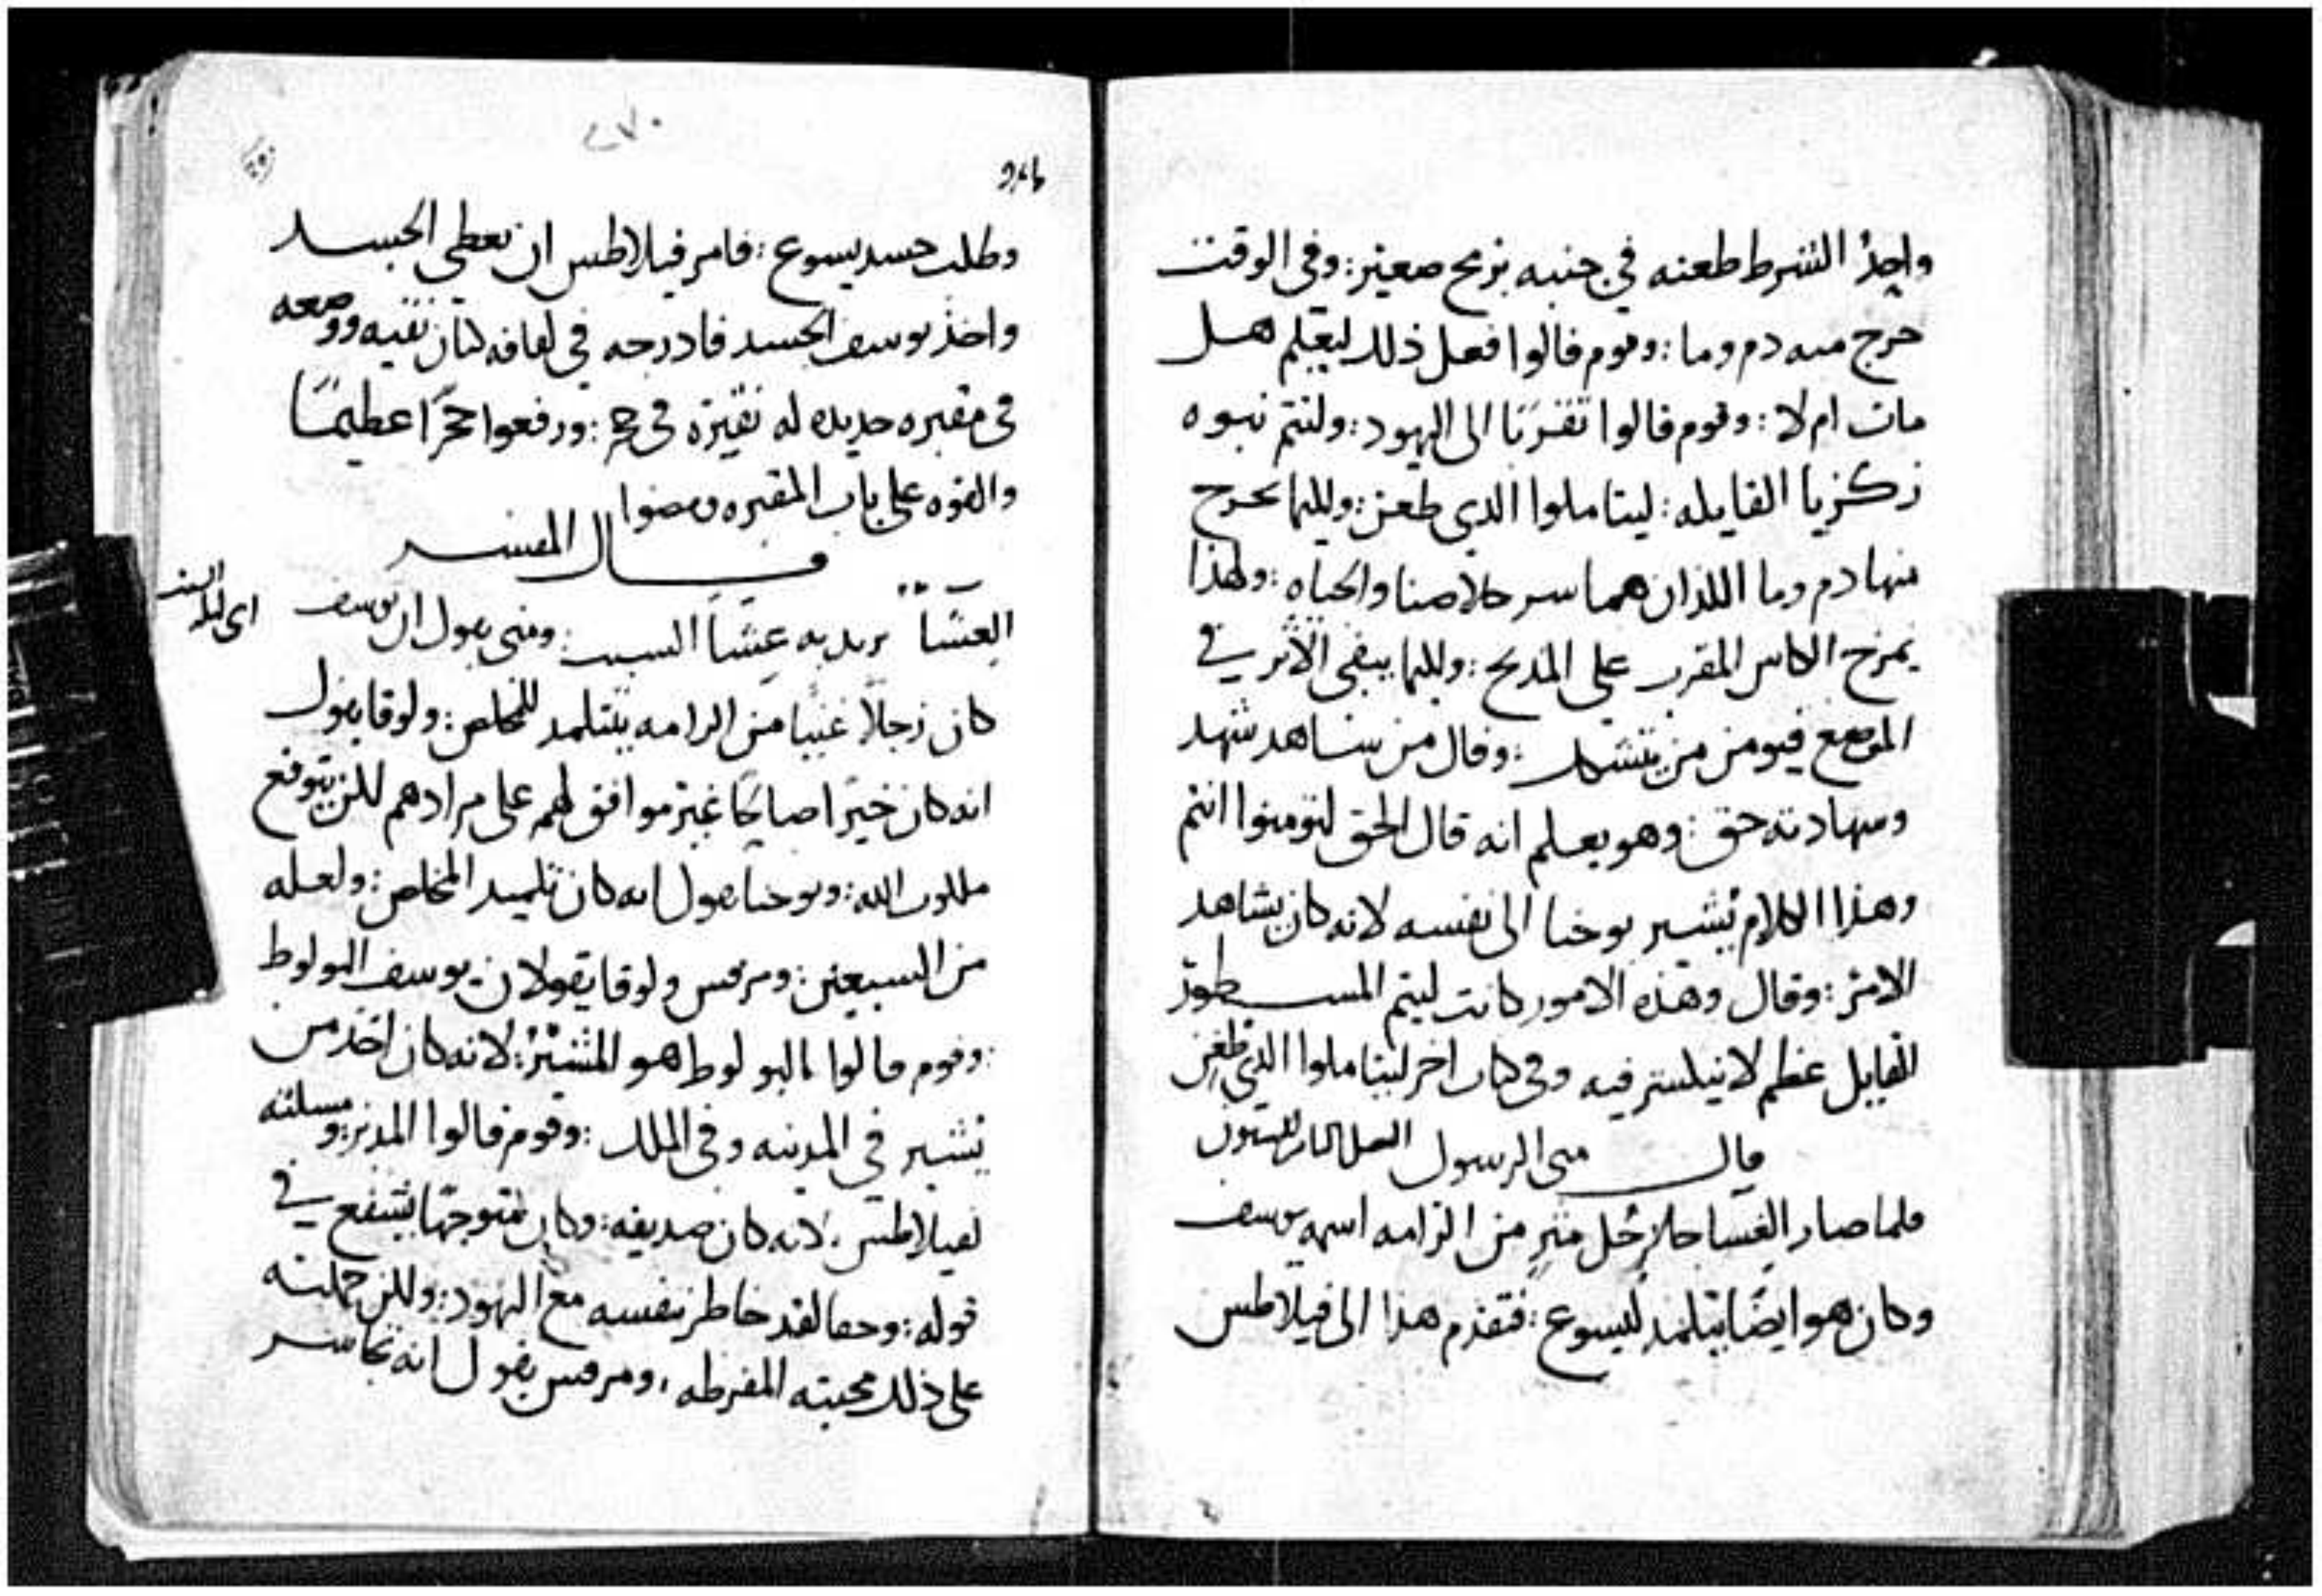 واحد الشرط طعنه في جنبه برمح صغير : وفي الوقت
خرج منه دم وما : وقوم قالوا فعل ذلك ليعلم هل
مات ام لا : وقوم قالوا تقربا الى اليهود : ولتتم نبوه
زكريا القايله : ليتاملوا الذي طعن : وكيما يخرج
منها دم وما اللذان هما سر خلاصنا والحياه : ولهذا
يمزج الكاس المقرب على المذبح : وكيما يبقى الاثر في
الموضع فيومن من يتشكك : وقال من شاهد شهد
وشهادته حق : وهو يعلم انه قال الحق لتومنوا انتم
وهذا الكلام يشير يوحنا الى نفسه لانه كان يشاهد
الامر : وقال وهذه الامور كانت ليتم المسطور
القايل عظم لا ينكسر فيه وفي كتاب اخر ليتاملوا الذي طعن
قال متى الرسول الفصل
فلما صار العشا جا رجل مثر من الرامه اسمه يوسف
وكان هو ايضا يتلمذ ليسوع : فتقدم هذا الى فيلاطس
٢٧٠
وطلب جسد يسوع : فامر فيلاطس ان يعطى الجسد
واخذ يوسف الجسد فادرجه في لفافه كتان نقيه ووضعه
في مقبره جديده له نقيره في حجر : ودفعوا حجرا عظيما
والقوه على باب المقبره ومضوا
قال المفسر
العشا يريد به عشا السبت : ومتى يقول ان يوسف
اي ليله السبت
كان رجلا غنيا من الرامه يتتلمذ للمخلص : ولوقا يقول
انه كان خيرا صالحا غير موافق لهم على مرادهم لكن يتوقع
ملكوت الله : ويوحنا يقول انه كان تلميذ المخلص : ولعله
من السبعين : ومرقس ولوقا يقولان يوسف البولوط
وقوم قالوا البولوط هو المشير : لانه كان احد من
يشير في المدينه وفي الملك : وقوم قالوا المدبر : ومسلته
لفيلاطس لانه كان صديقه : وكان متوجها يشفع في
قوله : وحقا لقد خاطر بنفسه مع اليهود : ولكن حملته
على ذلك محبته المفرطه ، ومرقس يقول انه تجاسر